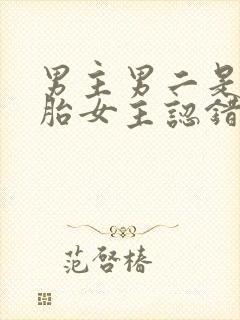 男主男二是
胎女主認錯
范啓椿